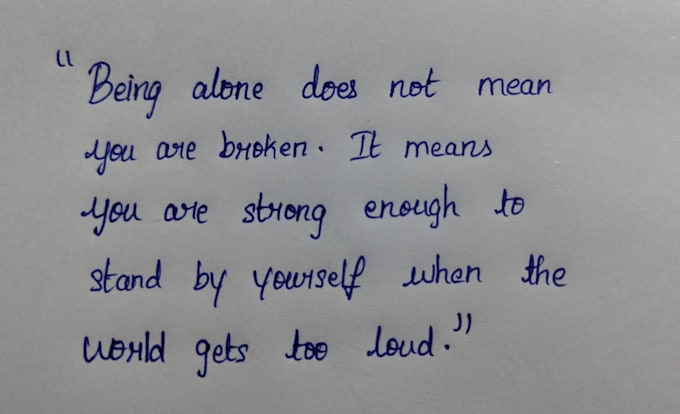 "Being alone does not mean
you are broken. It means
you are strong enough to
stand by yourself when the
world gets too loud."